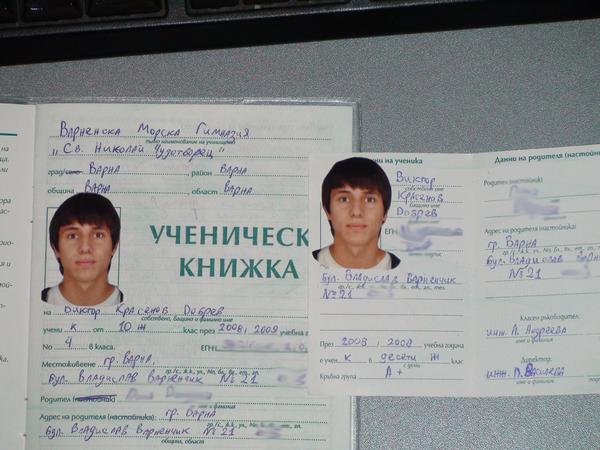 Варненска Морска Гимназия
пълно наименование на училището
"Св. Николай Чудотворец"
град/село Варна район Варна
община Варна област Варна
УЧЕНИЧЕСК
КНИЖКА
на Виктор Красенов Добрев
собствено, бащино и фамилно име
учени к от 10 ж клас през 2008/2009 учебна
No 4 в класа. ЕГН
Местоживеене гр. Варна,
бул. Владислав Варненчик № 21
Родител (настойник)
име и фамилия
Адрес на родителя (настойника): гр. Варна
бул. Владислав Варненчик № 21
община, област
ни на ученика
Виктор
собствено име
Красенов
бащино име
Добрев
ЕГН
бул. Владислав Варненчик
№ 21
През 2008/2009 учебна година
е учен. к в десети ж клас
Кръвна група А +
Данни на родителя (настойни
Родител (настойник)
име и фамилия
Адрес на родителя (настойника)
гр. Варна
бул. Владислав
№ 21
Класен ръководител:
инж. П. Андреева
име и фамилия
Директор:
инж.
име и фамилия